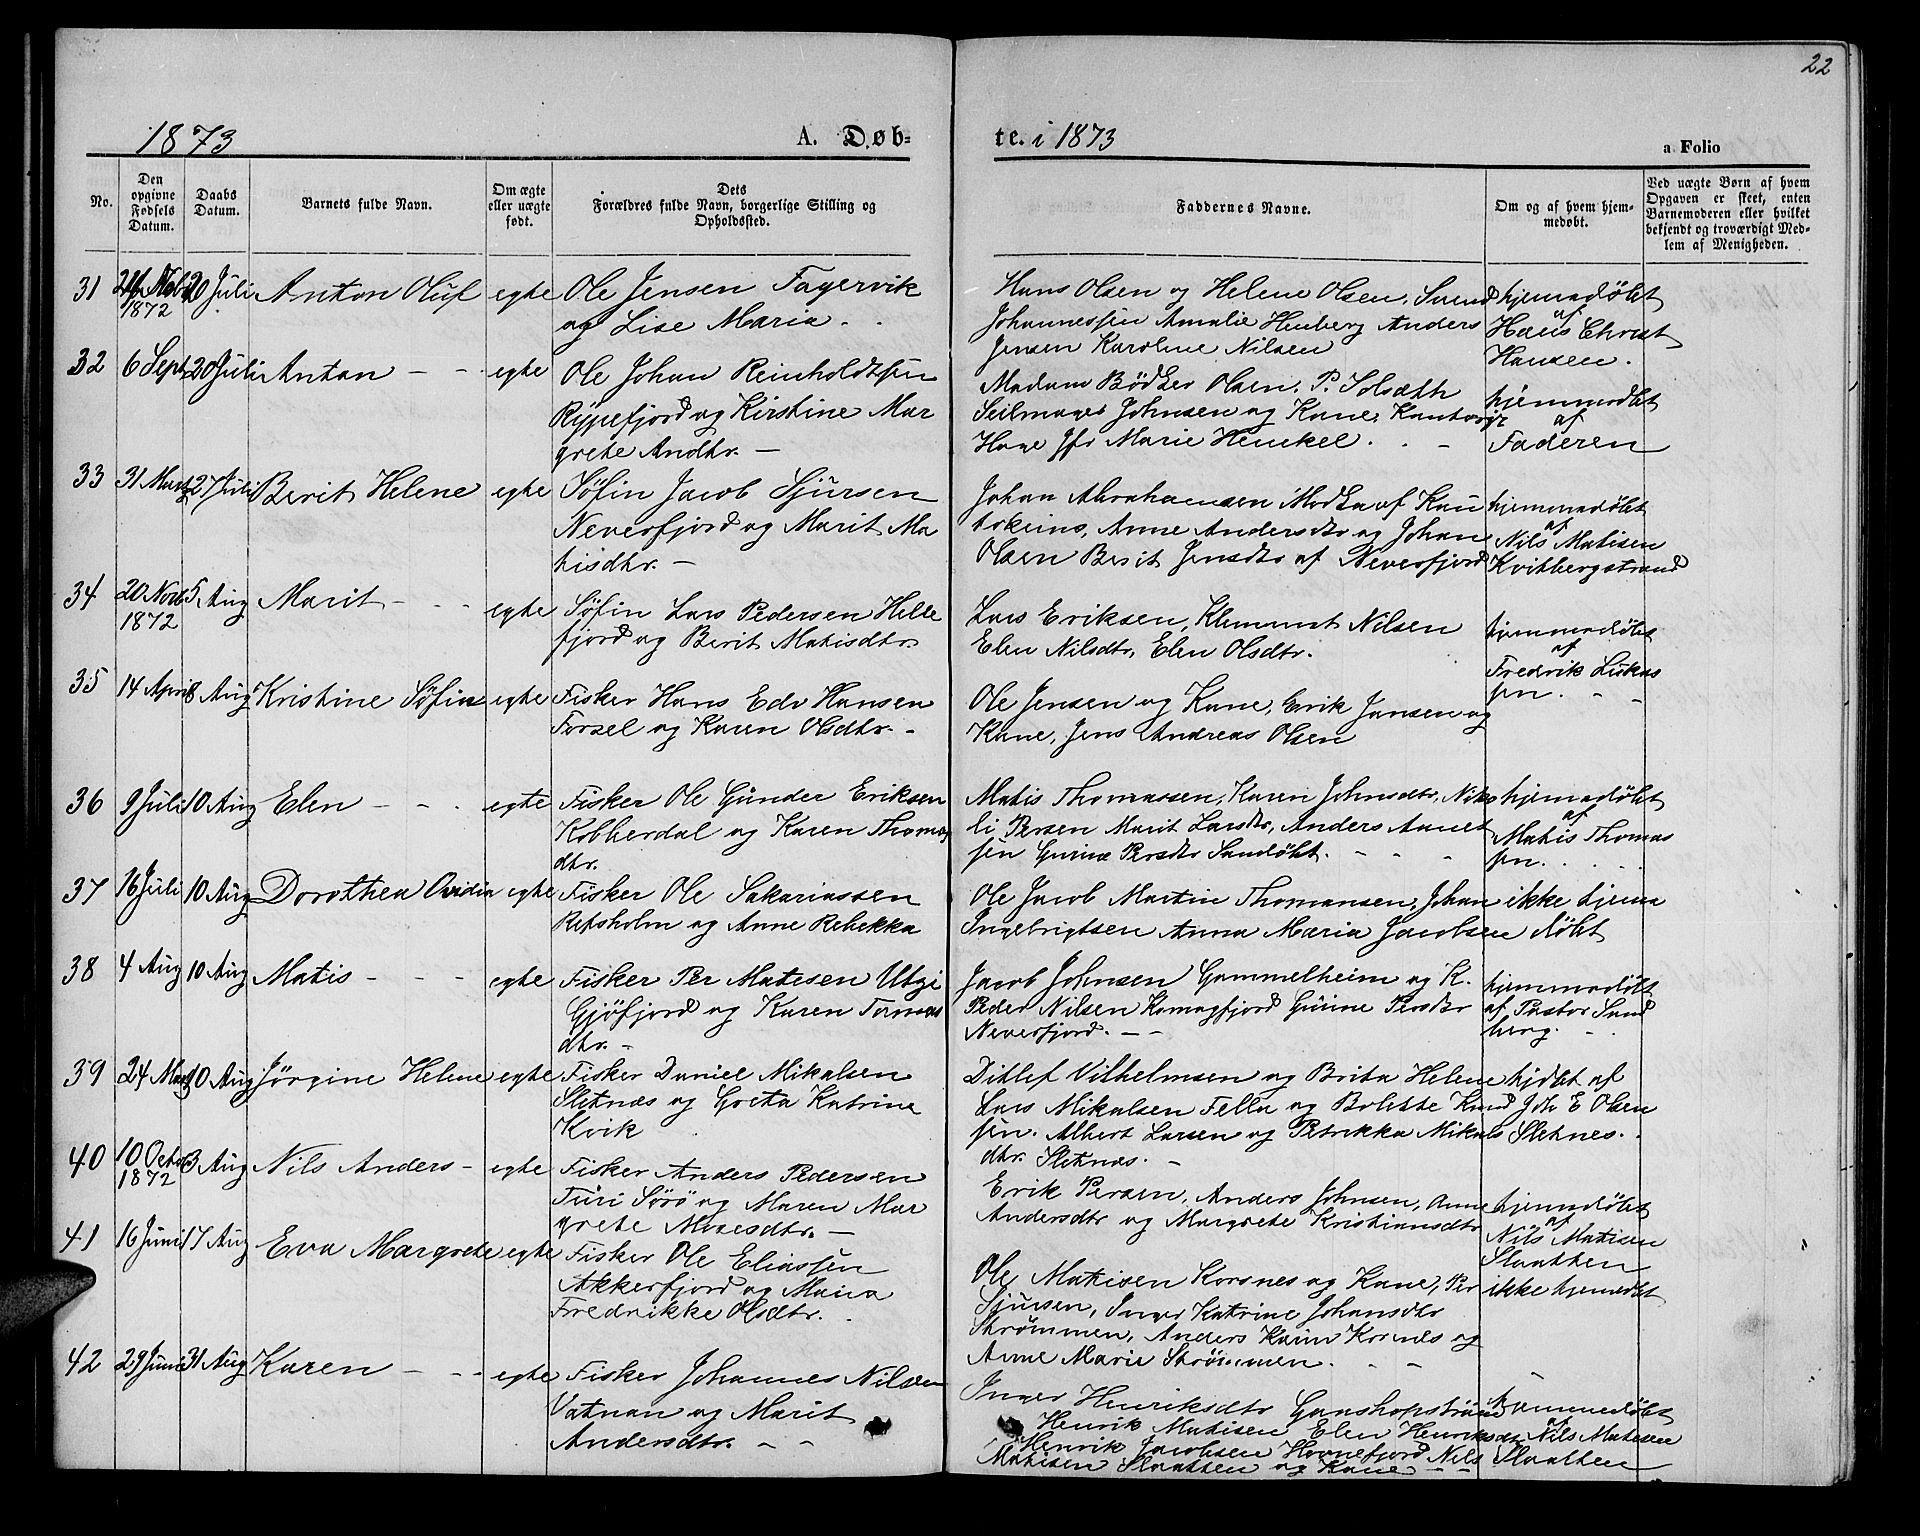 22
1873 A. Døb-
te. i 1873 a Folio
No.
Den opgivne Fødsels Datum.
Daabs Datum.
Barnets fulde Navn.
Om ægte eller uægte født.
Dets Forældres fulde Navn, borgerlige Stilling og Opholdssted.
Faddernes Navne.
Om og af hvem hjemmedøbt.
Ved uægte Børn af hvem
Opgaven er skeet, enten
Barnemoderen eller hvilket
bekjendt og troværdigt Med-
lem af Menigheden.
31 Novb 1872 20 Juli Anton Oluf egte Ole Jensen Fagervik
og Lise Maria.
Hans Olsen og Helene Olsen, Svend
Johannessen Amalie Anders
Jensen Karoline Nilsen
hjemmedøbt
af
Hans Christ
Hansen.
32 6 Sept 20 Juli Anton egte Ole Johan Reinholdtsen
Rypefjord og Kirstine Mar
grete Andtr.
Madam Bødker Olsen. P. Solsæth
Seilmager Johnsen og Kone, Kantor
Jfr Marie Henckel.
hjemmedbt
af
Faderen
33 31 Marts 27 Juli Berit Helene egte Søfin Jacob Sjursen
Neverfjord og Marit Ma
tisdtr.
Johan Abrahamsen af Kau
tokeino, Anne Andersdtr og Johan
Olsen Berit Jensdtr af Neverfjord
hjemmedøbt
af
Nils Matisen
Kvitbergstrand
34 20 Novb 1872 5 Aug Marit egte Søfin Lars Pedersen Helle
fjord og Berit Matisdtr.
Lars Eriksen, Klemmet Nilsen
Elen Nilsdtr, Elen Olsdtr.
hjemmedøbt
af
Fredrik Lukas
sen.
35 14 April 8 Aug Kristine Søfie egte Fisker Hans Edv Hansen
Forsøl og Karen Olsdtr.
Ole Jensen og Kone, Erik Jansen og
Kone, Jens Andreas Olsen
36 9 Juli 10 Aug Elen egte Fisker Ole Gunder Eriksen
Kobberdal og Karen Thomas
dtr.
Matis Thomassen, Karen Johnsdtr, Niko
li Persen Marit Larsdtr, Anders
sen Persdtr
hjemmedøbt
af
Matis Thomas
sen.
37 16 Juli 10 Aug Dorothea Ovidia egte Fisker Ole Sakariassen
Repsholm og Anne Rebekka
Ole Jacob Martin Thomassen, Johan
Ingebrigtsen Anna Maria Jacobsen
ikke hjemme
døbt
38 4 Aug 10 Aug Matis egte Fisker Per Matisen
Gjøfjord og Karen Tomas
dtr.
Jacob Johnsen Gammelheim og K.
Peder Nilsen Komagfjord Gurine Persdtr
Neverfjord.
hjemmedøbt
af Pastor Sund
berg.
39 24 Marts 10 Aug Jørgine Helene egte Fisker Daniel Mikalsen
Sletnæs og Greta Katrine
Kvik
Ditlef Vilhelmsen og Brita Helene
Lars Mikalsen Fella og Bolette Knud
sen. Albert Larsen og Petrikka Mikals
dtr. Sletnæs.
hjdbt af
Joh E Olsen
Sletnes.
40 10 Octb 1872 3 Aug Nils Anders egte Fisker Anders Pedersen
Sørø og Maren Mar
grete Mosesdtr.
Erik Persen, Anders Johnsen, Anne
Andersdtr og Margrete Kristiansdtr
hjemmedøbt
af
Nils Matisen
Slaatten
41 16 Juni 17 Aug Eva Margrete egte Fisker Ole Eliassen
Akkerfjord og Maria
Fredrikke Olsdtr.
Ole Matisen Korsnes og Kone, Per
Sjursen, Inger Katrine Johansdtr
Strømmen, Anders Korsnes og
Anne Marie Strømmen.
ikke hjemedbt
42 29 Juni 31 Aug Karen egte Fisker Johannes Nilsen
Vatnan og Marit
Andersdtr.
Inger Henriksdtr Ganshopstrand
Henrik Matisen Elen Henriksdt
Henrik Jacobsen Nils
Matisen Slaatten og Kone
hjemmedøbt
af
Nils Matisen
Slaatten